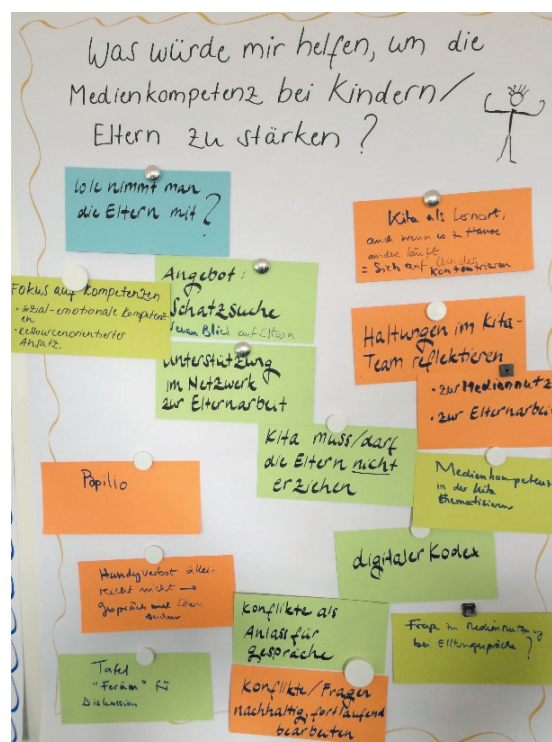 Was würde mir helfen, um die
Medienkompetenz bei Kindern/
Eltern zu stärken?
Wie nimmt man
die Eltern mit?
Kita als Lernort,
auch wenn es zu Hause
anders läuft
= Sich auf Kinder
konzentrieren
Angebot:
Schatzsuche
neuen Blick auf Eltern
Fokus auf Kompetenzen
• sozial-emotionale Kompetenz
en
• ressourcenorientierter
Ansatz
Haltungen im Kita-
Team reflektieren
• zur Mediennutz
• zur Elternarbei
Unterstützung
im Netzwerk
zur Elternarbeit
Kita muss/darf
die Eltern nicht
erziehen
Medienkompetenz
in der Kita
thematisieren
Papilio
digitaler Kodex
Handyverbot allei
reicht nicht →
Gespräch mit Eltern
suchen
Konflikte als
Anlass für
gespräche
Frage zu Mediennutzung
bei Elterngespräche?
Tafel
"Forum" für
Diskussion
Konflikte/Fragen
nachhaltig, fortlaufend
bearbeiten